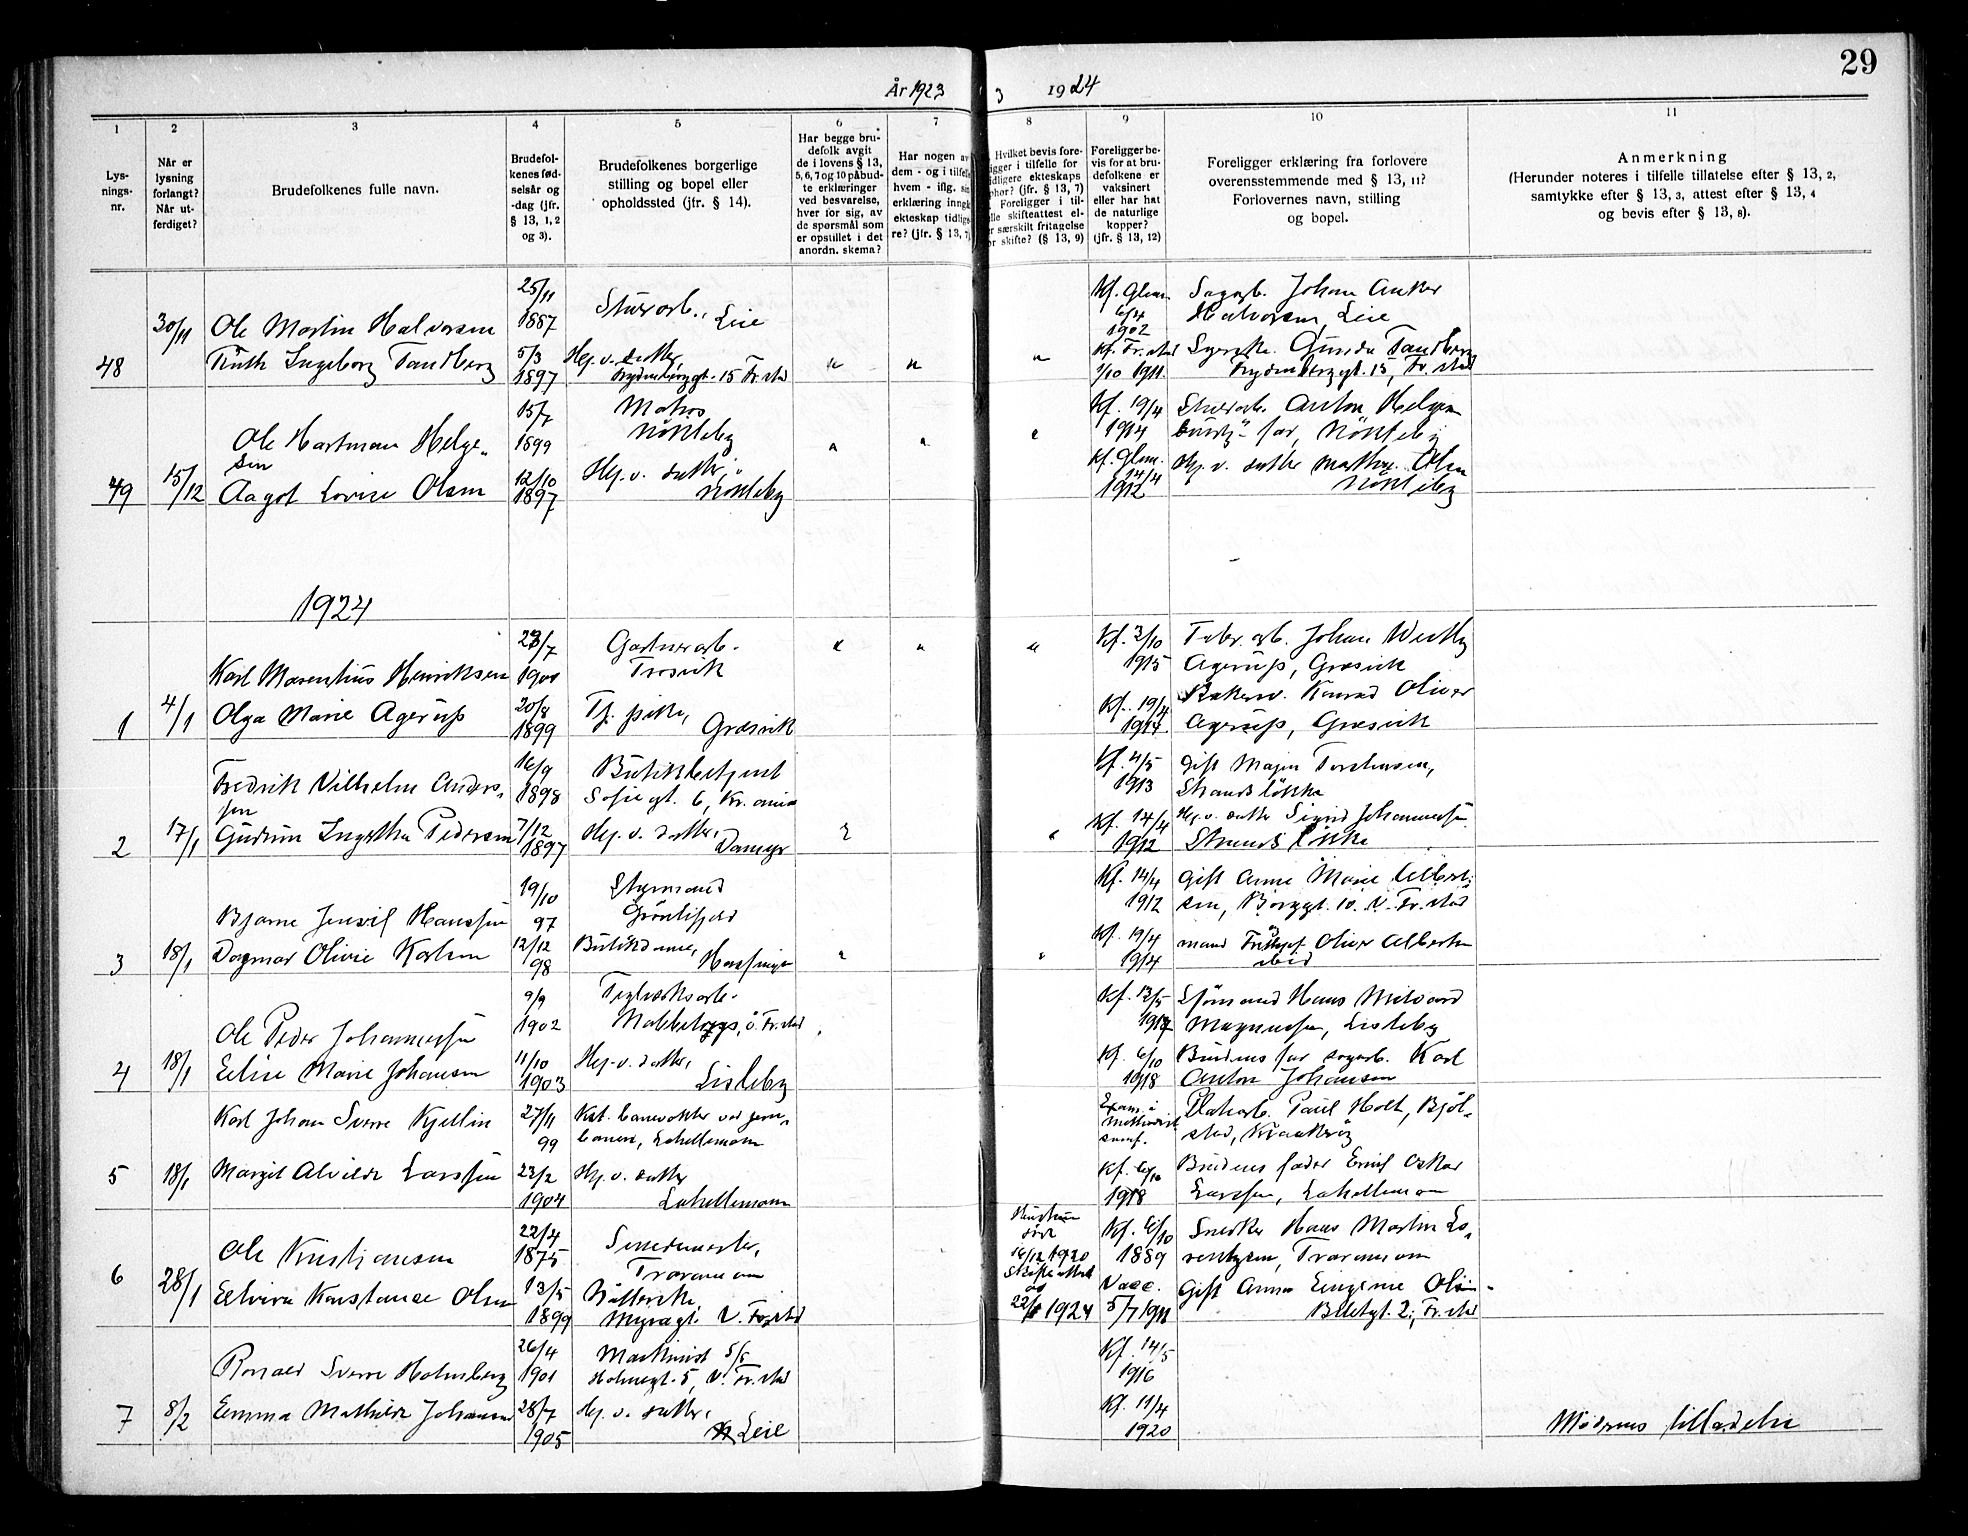 29
År 1923
3 1924
1
2
3
4
5
6
7
8
9
10
11
Lys-
nings-
nr.
Når er
lysning
forlangt?
Når ut-
ferdiget?
Brudefolkenes fulle navn.
Brudefol-
kenes fød-
selsår og
-dag (jfr.
§ 13, 1, 2
og 3).
Brudefolkenes borgerlige
stilling og bopel eller
opholdssted (jfr. § 14).
Har begge bru-
defolk avgit
de i lovens § 13,
5, 6, 7 og 10 påbud-
te erklæringer
ved besvarelse,
hver for sig, av
de spørsmål som
er opstillet i det
anordn. skema?
Har nogen av
dem - og i tilfelle
hvem - iflg. sin
erklæring inngå
ekteskap tidlige
re? (jfr. § 13, 7)
Hvilket bevis fore-
ligger i tilfelle for
idligere ekteskaps
phør? (jfr. § 13, 7)
Foreligger i til-
lle skifteattest el-
r særskilt fritagelse
or skifte? (§ 13, 9)
Foreligger be-
vis for at bru-
defolkene er
vaksinert
eller har hat
de naturlige
kopper?
(jfr. § 13, 12)
Foreligger erklæring fra forlovere
overensstemmende med § 13, 11?
Forlovernes navn, stilling
og bopel.
Anmerkning
(Herunder noteres i tilfelle tillatelse efter § 13, 2,
samtykke efter § 13, 3, attest efter § 13, 4
og bevis efter § 13, 8).
48
30/11
Ole Martin Halvorsen
25/11
1887
Leie
Kf. Glem.
6/4
1902
Sagarb. Johan Anker
Halvorsen, Leie
Ruth Ingeborg Tandberg
5/3
1897
Hj. v. datter
15 Fr.stad
Kf. Fr.stad
1/10 1911
Gunda Tandberg
15, Fr.stad
49
15/12
Ole Hartman Helge-
sen
15/7
1899
Matros
Nøkleby
Kf. 19/4
1914
Anton Helgesen
far, Nøkleby
Aagot Lovise Olsen
12/10
1897
Hj. v. datter
Nøkleby
Kf. Glem.
14/4
1912
Hj. v. datter Olsen
Nøkleby
1924
1
4/1
Karl Marentius Henriksen
23/7
1900
Gartnerarb.
Trosvik
Kf. 3/10
1915
Fabr. arb. Johan Westby
Agerup, Græsvik
Olga Marie Agerup
20/8
1899
Tj. pike,
Græsvik
Kf. 19/4
1914
Bakersv. Konrad Oliver
Agerup, Græsvik
2
17/1
Fredrik Vilhelm Anders-
sen
16/9
1898
Butikkbetjent
Sofiegt. 6, Kr.ania
Kf. 4/5
1913
Gift Majen Torshensen,
Strandsløkka
Gudrun Ingertha Pedersen
7/12
1897
Hj. v. datter,
Damyr
Kf. 14/4
1912
Hj. v. datter Sigrid Johannessen
Strandsløkka
3
18/1
Bjarne Hanssen
19/10
97
Styrmand
Kf. 14/4
1912
Gift Anne Marie Albert-
sen, Borggt. 10. V. Fr.stad
Dagmar Olivie Karlsen
12/12
98
Butikdame,
Kf. 19/4
1914
mand Oliver Albertsen
ibid
4
18/1
Ole Peder Johannessen
9/9
1902
Teglverksarb.
Ø. Fr.stad
Kf. 13/5
1917
Sjømand Hans Milvard
Magnussen, Lisleby
Eline Marie Johansen
11/10
1903
Hj. v. datter,
Lisleby
Kf. 6/10
1918
Brudens far sagarb. Karl
Anton Johansen
5
18/1
Karl Johan Sverre Kjellin
27/11
99
banevokter ved jern-
banen, Lahellemoen
Exam. i
Methodist
samf.
Platearb. Paul Holt, Bjøl-
stad, Kraakerøy
Margit Alvilde Larssen
23/2
1904
Hj. v. datter
Lahellemoen
Kf. 6/10
1918
Brudens fader Emil Oskar
Larssen, Lahellemoen
6
28/1
Ole Kristiansen
22/4
1875
Smedmester,
Traramoen
Hustruen
død
16/12 1920
Skifteattest
av
22/1 1924
Kf. 6/10
1889
Snedker Hans Martin Lo-
rentzen, Traramoen
Elvira Konstance Olsen
13/5
1899
Myragt. V. Fr.stad
Vacc.
5/7 1911
Gift Anna Eugenie Olsen
2, Fr.stad
7
8/2
Ronald Sverre Holmberg
26/4
1901
Maskinist S/S
Holmegt. 5, V. Fr.stad
Kf. 14/5
1916
Emma Mathilde Johansen
28/7
1905
Hj. v. datter,
Leie
Kf. 11/4
1920
Moderens tilladelse